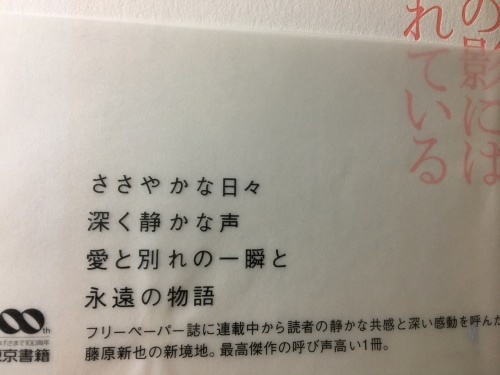 の影には
れている
ささやかな日々
深く静かな声
愛と別れの一瞬と
永遠の物語
フリーペーパー誌に連載中から読者の静かな共感と深い感動を呼んだ
藤原新也の新境地。最高傑作の呼び声高い1冊。
th
おかげさまで100周年
東京書籍